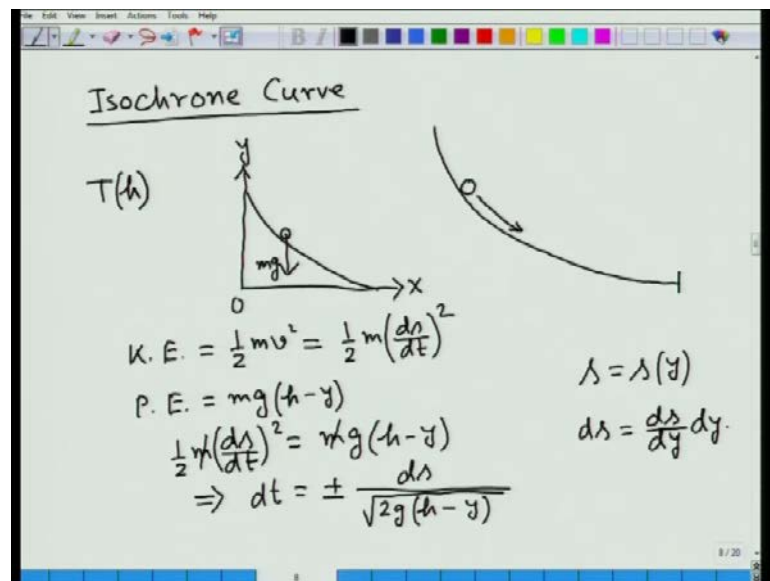 File Edit View Insert Actions Tools Help
B I
Isochrone Curve
T(h)
y
mg
O
x
K.E. = 1/2 mv² = 1/2 m(ds/dt)²
P.E. = mg(h-y)
1/2 m(ds/dt)² = mg(h-y)
⇒ dt = ± ds/√2g(h-y)
s = s(y)
ds = ds/dy dy.
8/20
8